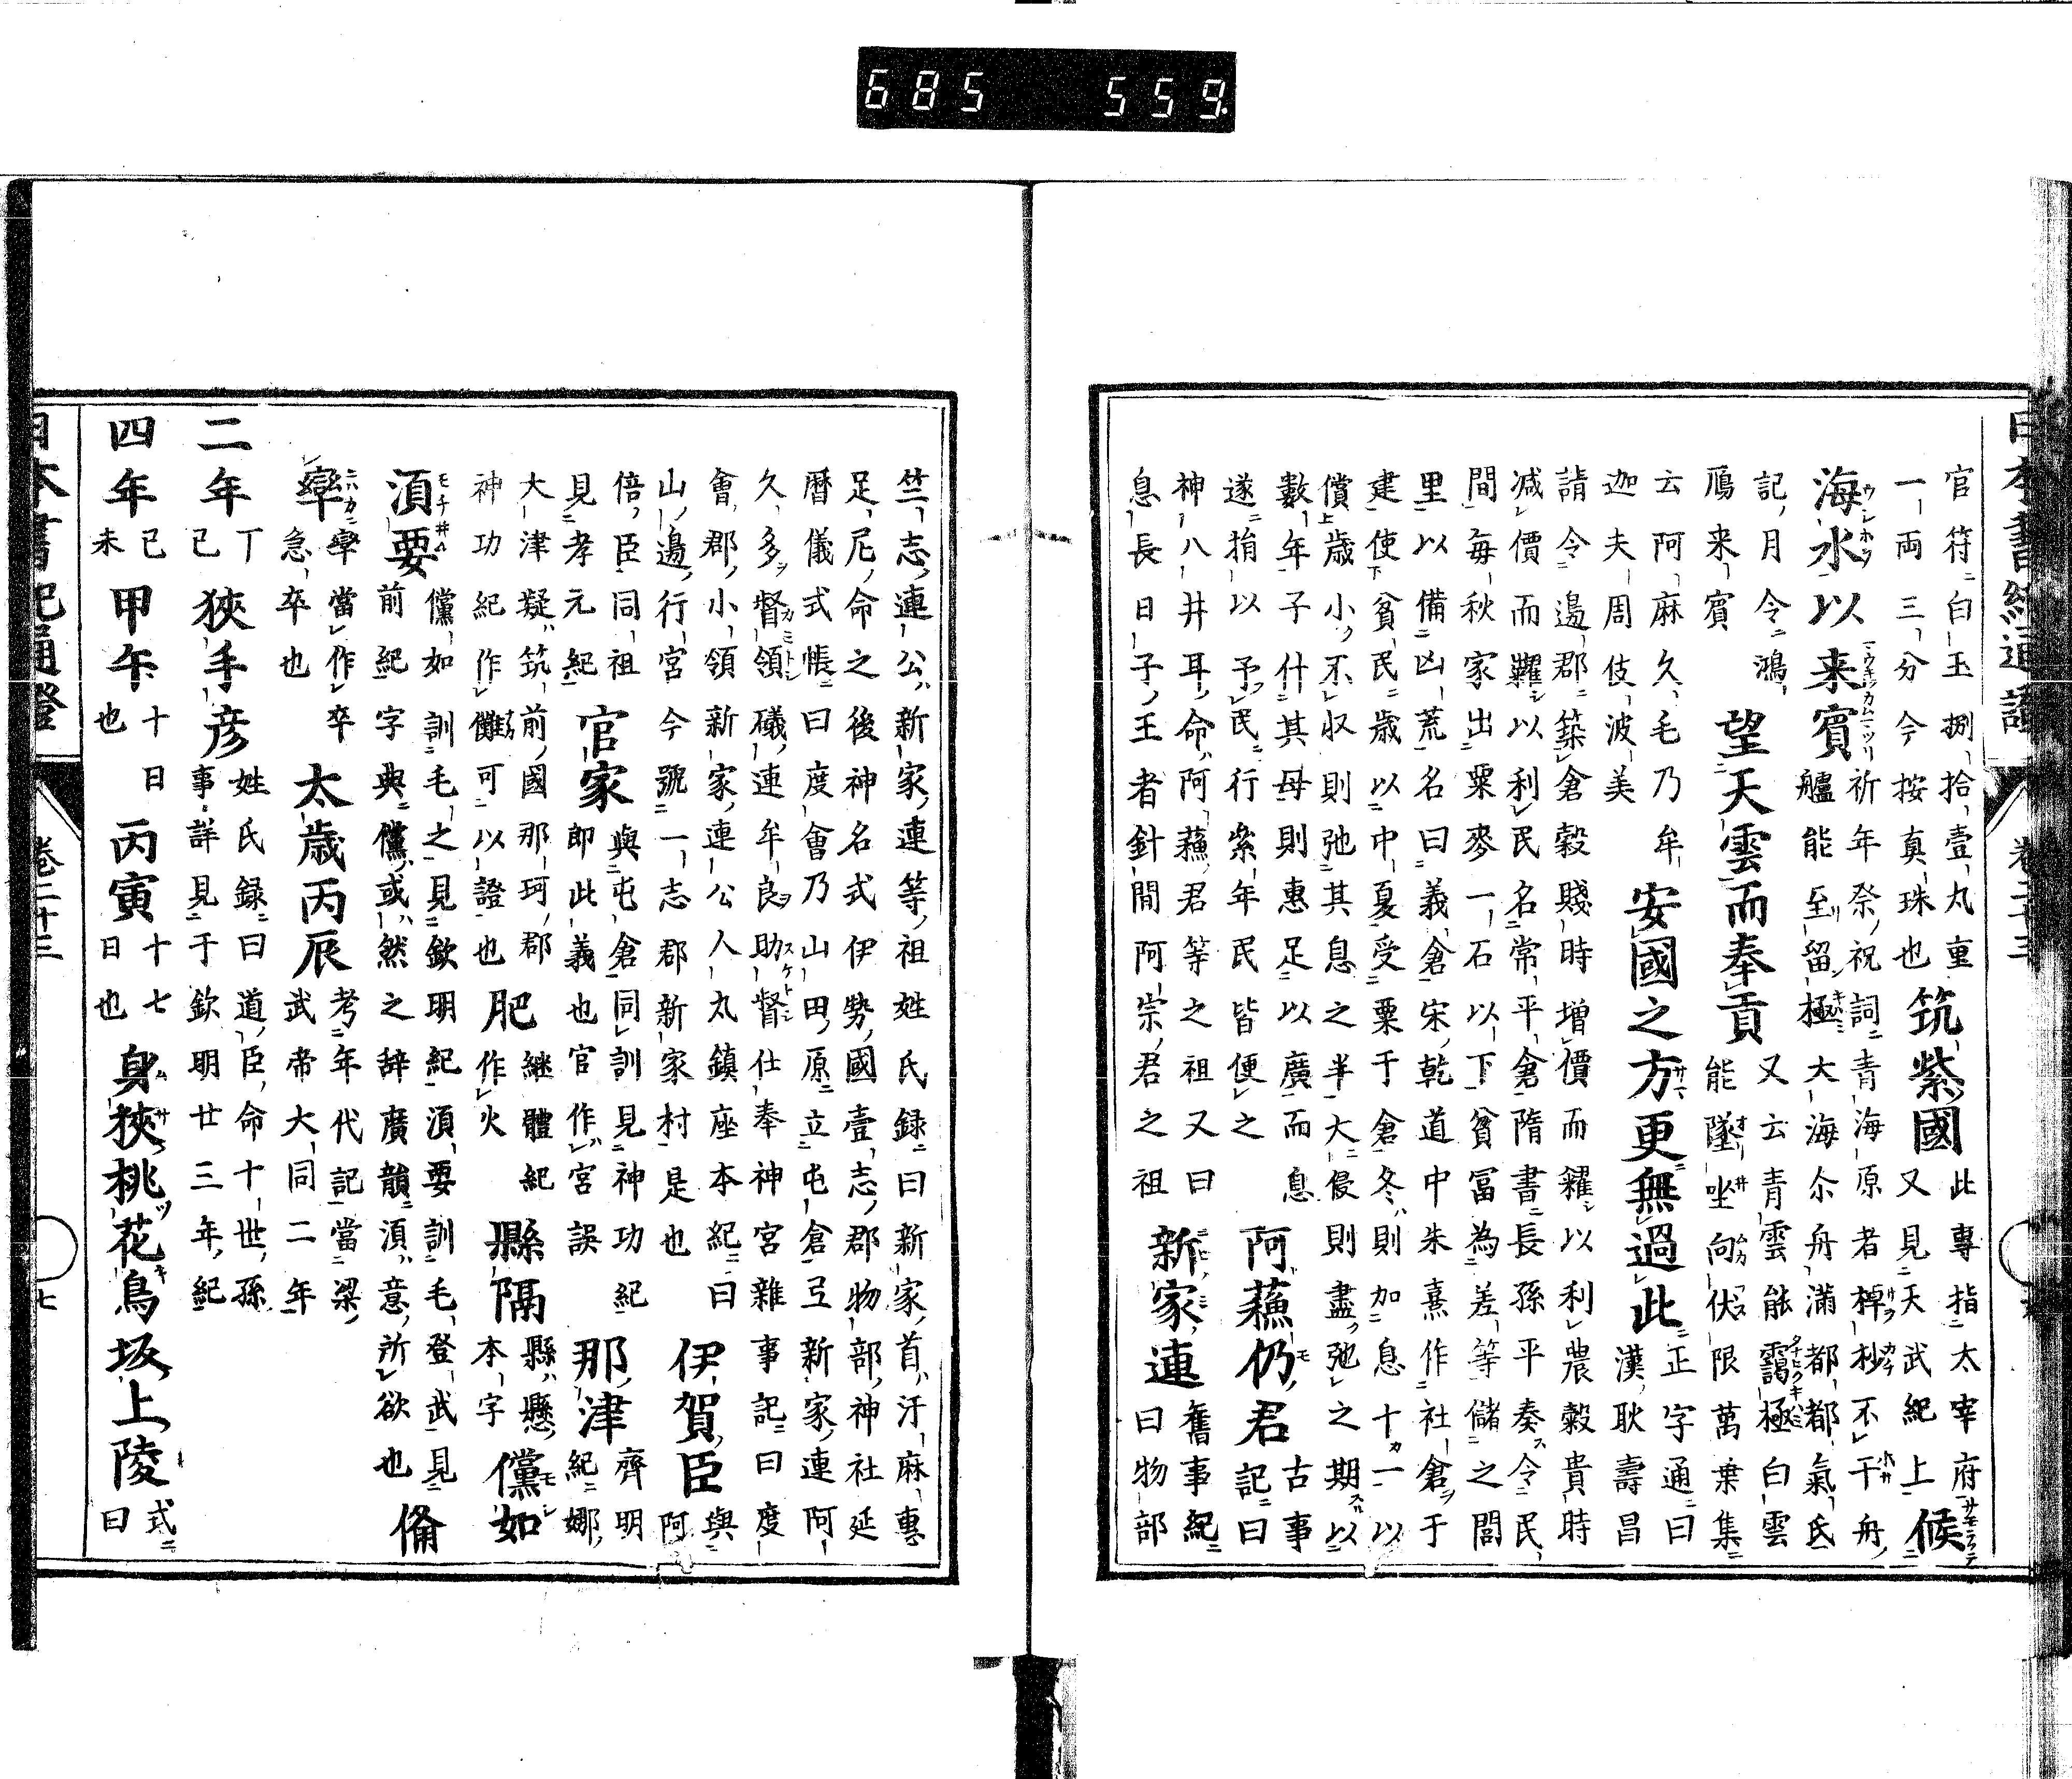 日本書紀通證　卷二十三
官符白玉捌拾壹丸重
一両三分今按真珠也
筑紫國
此專指太宰府
又見天武紀上
候
海水以来賓
祈年祭祝詞青海原者棹柁不干舟
艫能至留極大海尓舟滿都都氣氐
記月令鴻
鴈来賓
望天雲而奉貢
又云青雲能靄極白雲
能墜坐向伏限萬葉集
云阿麻久毛乃牟
迦夫周伎波美
安國之方更無過此
正字通曰
漢耿壽昌
請令邊郡築倉穀賤時増價而糴以利農穀貴時
减價而糶以利民名常平倉隋書長孫平奏令民
間毎秋家出粟麥一石以下貧冨為差等儲之閭
里以備凶荒名曰義倉宋乾道中朱熹作社倉于
建使貧民歳以中夏受粟于倉冬則加息十一以
償歳小不収則弛其息之半大侵則盡弛之期以
數年子什其母則惠足以廣而息
遂捐以予民行紫年民皆便之
阿蘓仍君
古事
記曰
神八井耳命阿蘓君等之祖又曰
息長日子王者針間阿宗君之祖
新家連
舊事紀
曰物部
竺志連公新家連等祖姓氏録曰新家首汙麻惠
足尼命之後神名式伊勢國壹志郡物部神社延
暦儀式帳曰度會乃山田原立屯倉弖新家連阿
久多督領礒連牟良助督仕奉神宮雜事記曰度
會郡小領新家連公人丸鎮座本紀曰
山邊行宮今號一志郡新家村是也
伊賀臣
與
阿
倍臣同祖
見孝元紀
官家
與屯倉同訓見神功紀
即此義也官作宮誤
那津
齊明
紀娜
大津疑筑前國那珂郡
神功紀作儺可以證也
肥
継體紀
作火
縣隔
縣懸
本字
儻如
須要
儻如訓毛之見欽明紀須要訓毛登武見
前紀字典儻或然之辞廣韻須意所欲也
俻
率
率當作卒
急卒也
太歳丙辰
考年代記當梁
武帝大同二年
二年
丁
巳
狹手彦
姓氏録曰道臣命十世孫
事詳見于欽明廿三年紀
四年
己
未
甲午
十日
也
丙寅
十七
日也
身狹桃花鳥坂上陵
式
曰
日本書紀通證　卷二十三　七